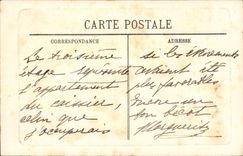 CARTE POSTALE
CORRESPONDANCE
ADRESSE
Le troisième
étage représente
l'appartement
du caissier,
celui que
j'occuperais
si les évènements
avaient été
plus favorables
Encore un
bon
Marguerite